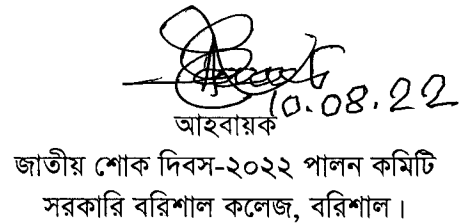 10.08.22
আহবায়ক
জাতীয় শোক দিবস-২০২২ পালন কমিটি
সরকারি বরিশাল কলেজ, বরিশাল।